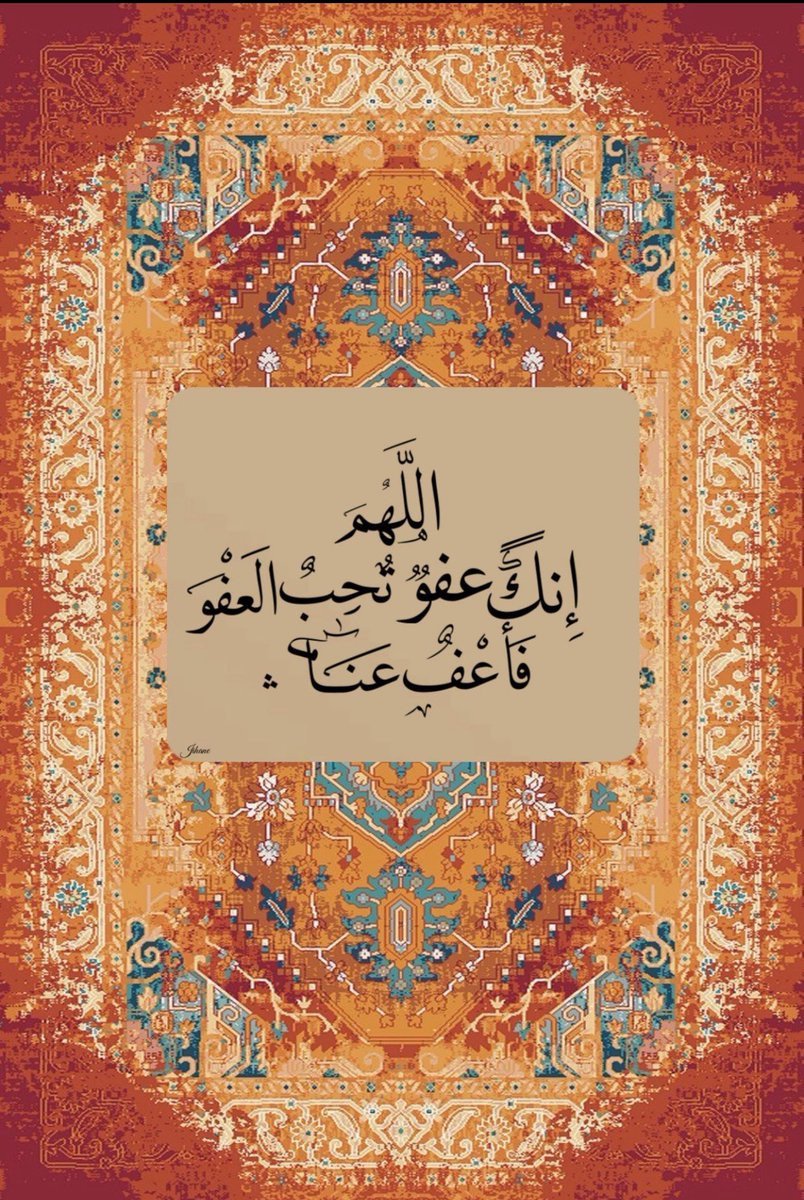 اللَّهُمَ
إِنكَّ عفوٌ تُحِبُ العَفْوَ
فَأعْفُ عَنَا
Jihane